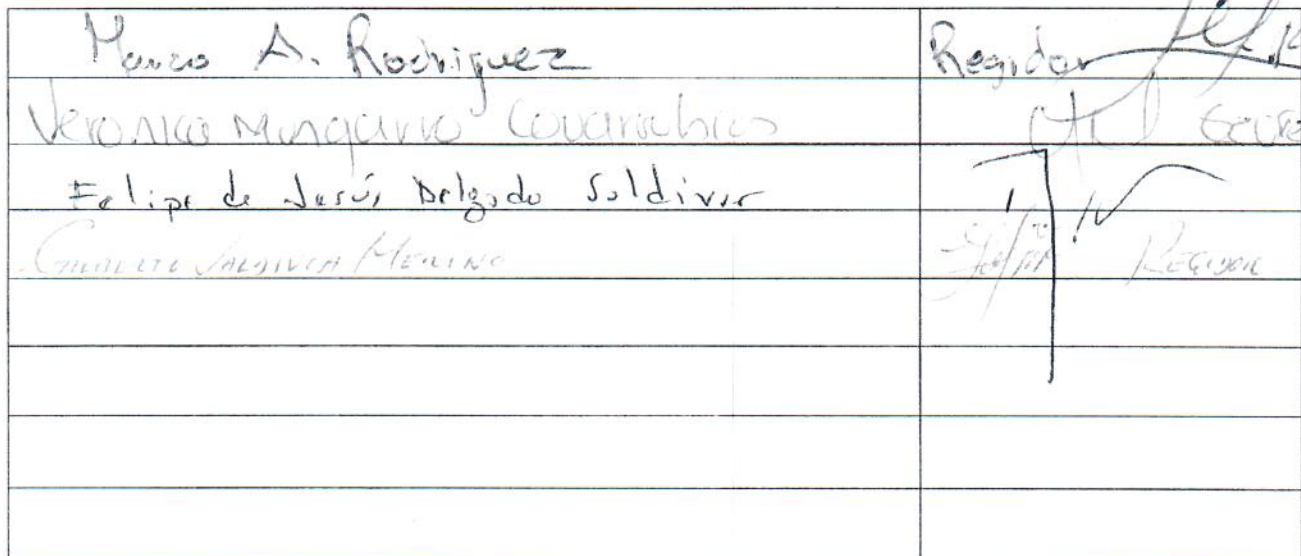 Marco A. Rodriguez Regidor
Veronica Mungarro Covarrubias
Felipe de Jesús Delgado Saldivar
Gilberto Saldivia Merino Regidor